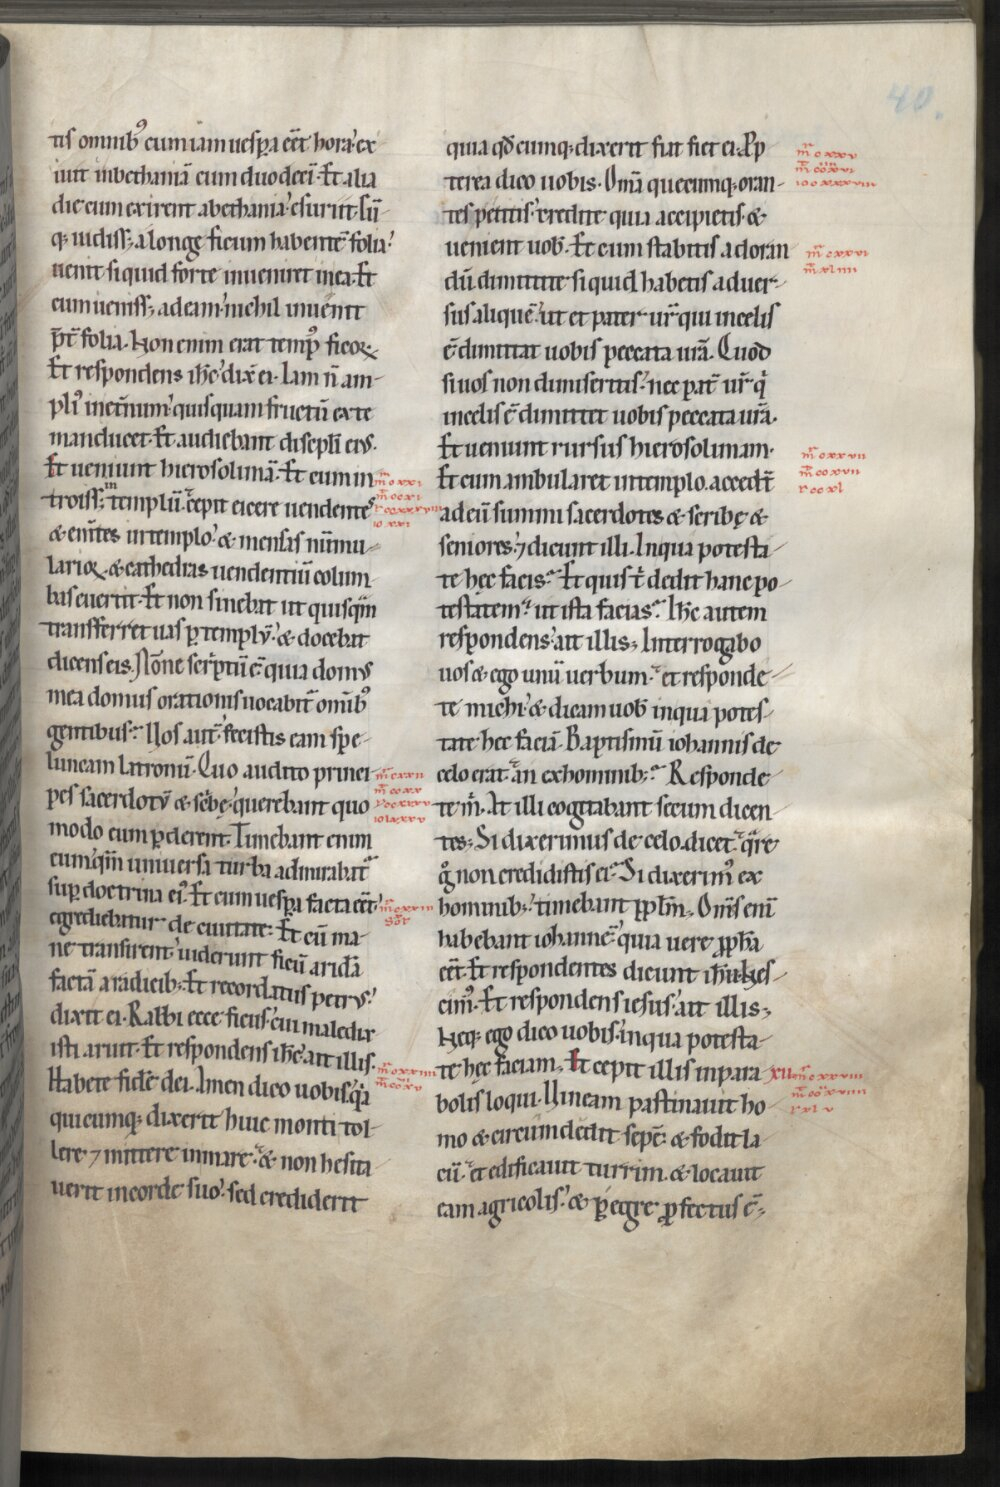 40.
tis omnib⁹ cum iam uesp̄a eēt hora. ex
iuit in bethaniā cum duodecī. Et alia
die cum exirent a bethania. esuriit. Cū
q; uidiss; a longe ficum habentē folia.
uenit si quid forte inueniret in ea. Et
cum ueniss; ad eam. nichil inuenit
p̄t folia. Non enim erat temp⁹ ficoꝝ
Et respondens ih̄c dix̄ ei. Iam n̄ am-
pli⁹ in et̄num quisquam fructū ex te
manducet. Et audiebant discipl̄i ei⁹.
Et ueniunt hierosolimā. Et cum in
troiss; in templū. cepit eicere uendentes
& em̄tes in templo. & mensas nūmu-
larioꝝ. & cathedras uendentiū colum-
bas euertit. Et non sinebat ut quisqm̄
transferret uas p̱ templū. & docebat
dicens eis. Nōne scriptū ē quia domus
mea domus orationis uocabit̄ omīb⁹
gentibus. Uos aut̄ fecistis eam spe-
luncam latronū. Quo audito princi-
pes sacerdotū & scb̄e. querebant quo
modo eum p̱derent. Timebant enim
eum. qm̄ uniuersa turba admirabat̄
sup̱ doctrina ei⁹. Et cum uesp̱a facta eēt.
egrediebatur de ciuitate. Et cū ma-
ne transirent. uiderunt ficū aridā
factā a radicib; Et recordatus petrus.
dixit ei. Rabbi ecce ficus. cui maledix
isti aruit. Et respondens ih̄c. ait illis.
Habete fidē dei. Amen dico uobis. qa
quicumq; dixerit huic monti tol-
lere ⁊ mittere in mare. & non hesita
uerit in corde suo. sed crediderit
m̄ cxxi
m̄ ccxi
io xxi
m̄ cxxii
m̄ cxxiii
m̄ cxxiiii
quia qd̄cumq; dixerit fiat fiet ei. Pp
terea dico uobis. Om̄a quecumq; oran-
tes petitis. credite quia accipietis. &
uenient uob̄. Et cum stabitis ad oran
dū dimittite si quid habetis aduer-
sus aliquē. ut et pater ur̄ qui in celis
ē dimittat uobis peccata ur̄a. Quod
si uos non dimiseritis. nec pat̄ ur̄ q̇
in celis ē dimittet uobis peccata ur̄a.
Et ueniunt rursus hierosolimam.
Et cum ambularet in templo. accedt̄
ad eū summi sacerdotes & scribe &
seniores. ⁊ dicunt illi. In qua potesta-
te hec facis. Et quis t̄ dedit hanc po-
testatem. ut ista facias. Ih̄c autem
respondens. ait illis; Interrogabo
uos & ego unū uerbum. et responde-
te michi. & dicam uob̄ in qua potes-
tate hec faciā. Baptismū iohannis de
celo erat. an ex hominib; Responde-
te m̄. At illi cogitabant secum dicen
tes; Si dixerimus de celo. dicet. qr̄e
g̊ non credidistis ei. Si dixerim⁹ ex
hominib;. timebant pplm̄. Om̄s eni
habebant iohannē. quia uere ppħa
eēt. Et respondentes dicunt ih̄u. Nes-
cim⁹. Et respondens iesus. ait illis;
Neq; ego dico uobis. in qua potesta-
te hec faciam. Et cepit illis in para
bolis loqui. Uineam pastinauit ho
mo & circumdedit sepē. & fodit la
cū. et edificauit turrim. & locauit
eam agricolis. & p̱egre pfectus ē;
m̄ cxxv
m̄ cxxvi
m̄ xliiii
m̄ cxxvii
m̄ ccxvii
r ccxl
xii
m̄ cxxviii